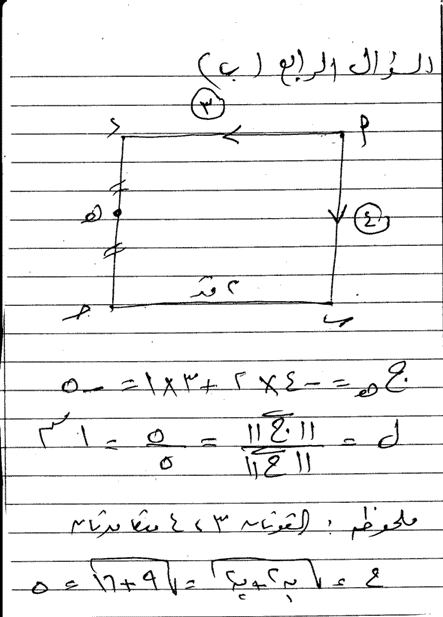 السؤال الرابع (ب)
٣
د
٢
هـ
٤
٢ وحد
جـ
ب
جـ هـ = - ٤ × ٢ + ٣ × ١ = - ٥
ل = ||جـ|| / ||ح|| = ٥ / ٥ = ١ م
ملحوظة : القوتان ٣ ، ٤ متعامدتان
ح = √ق١٢ + ق٢٢ = √٩ + ١٦ = ٥